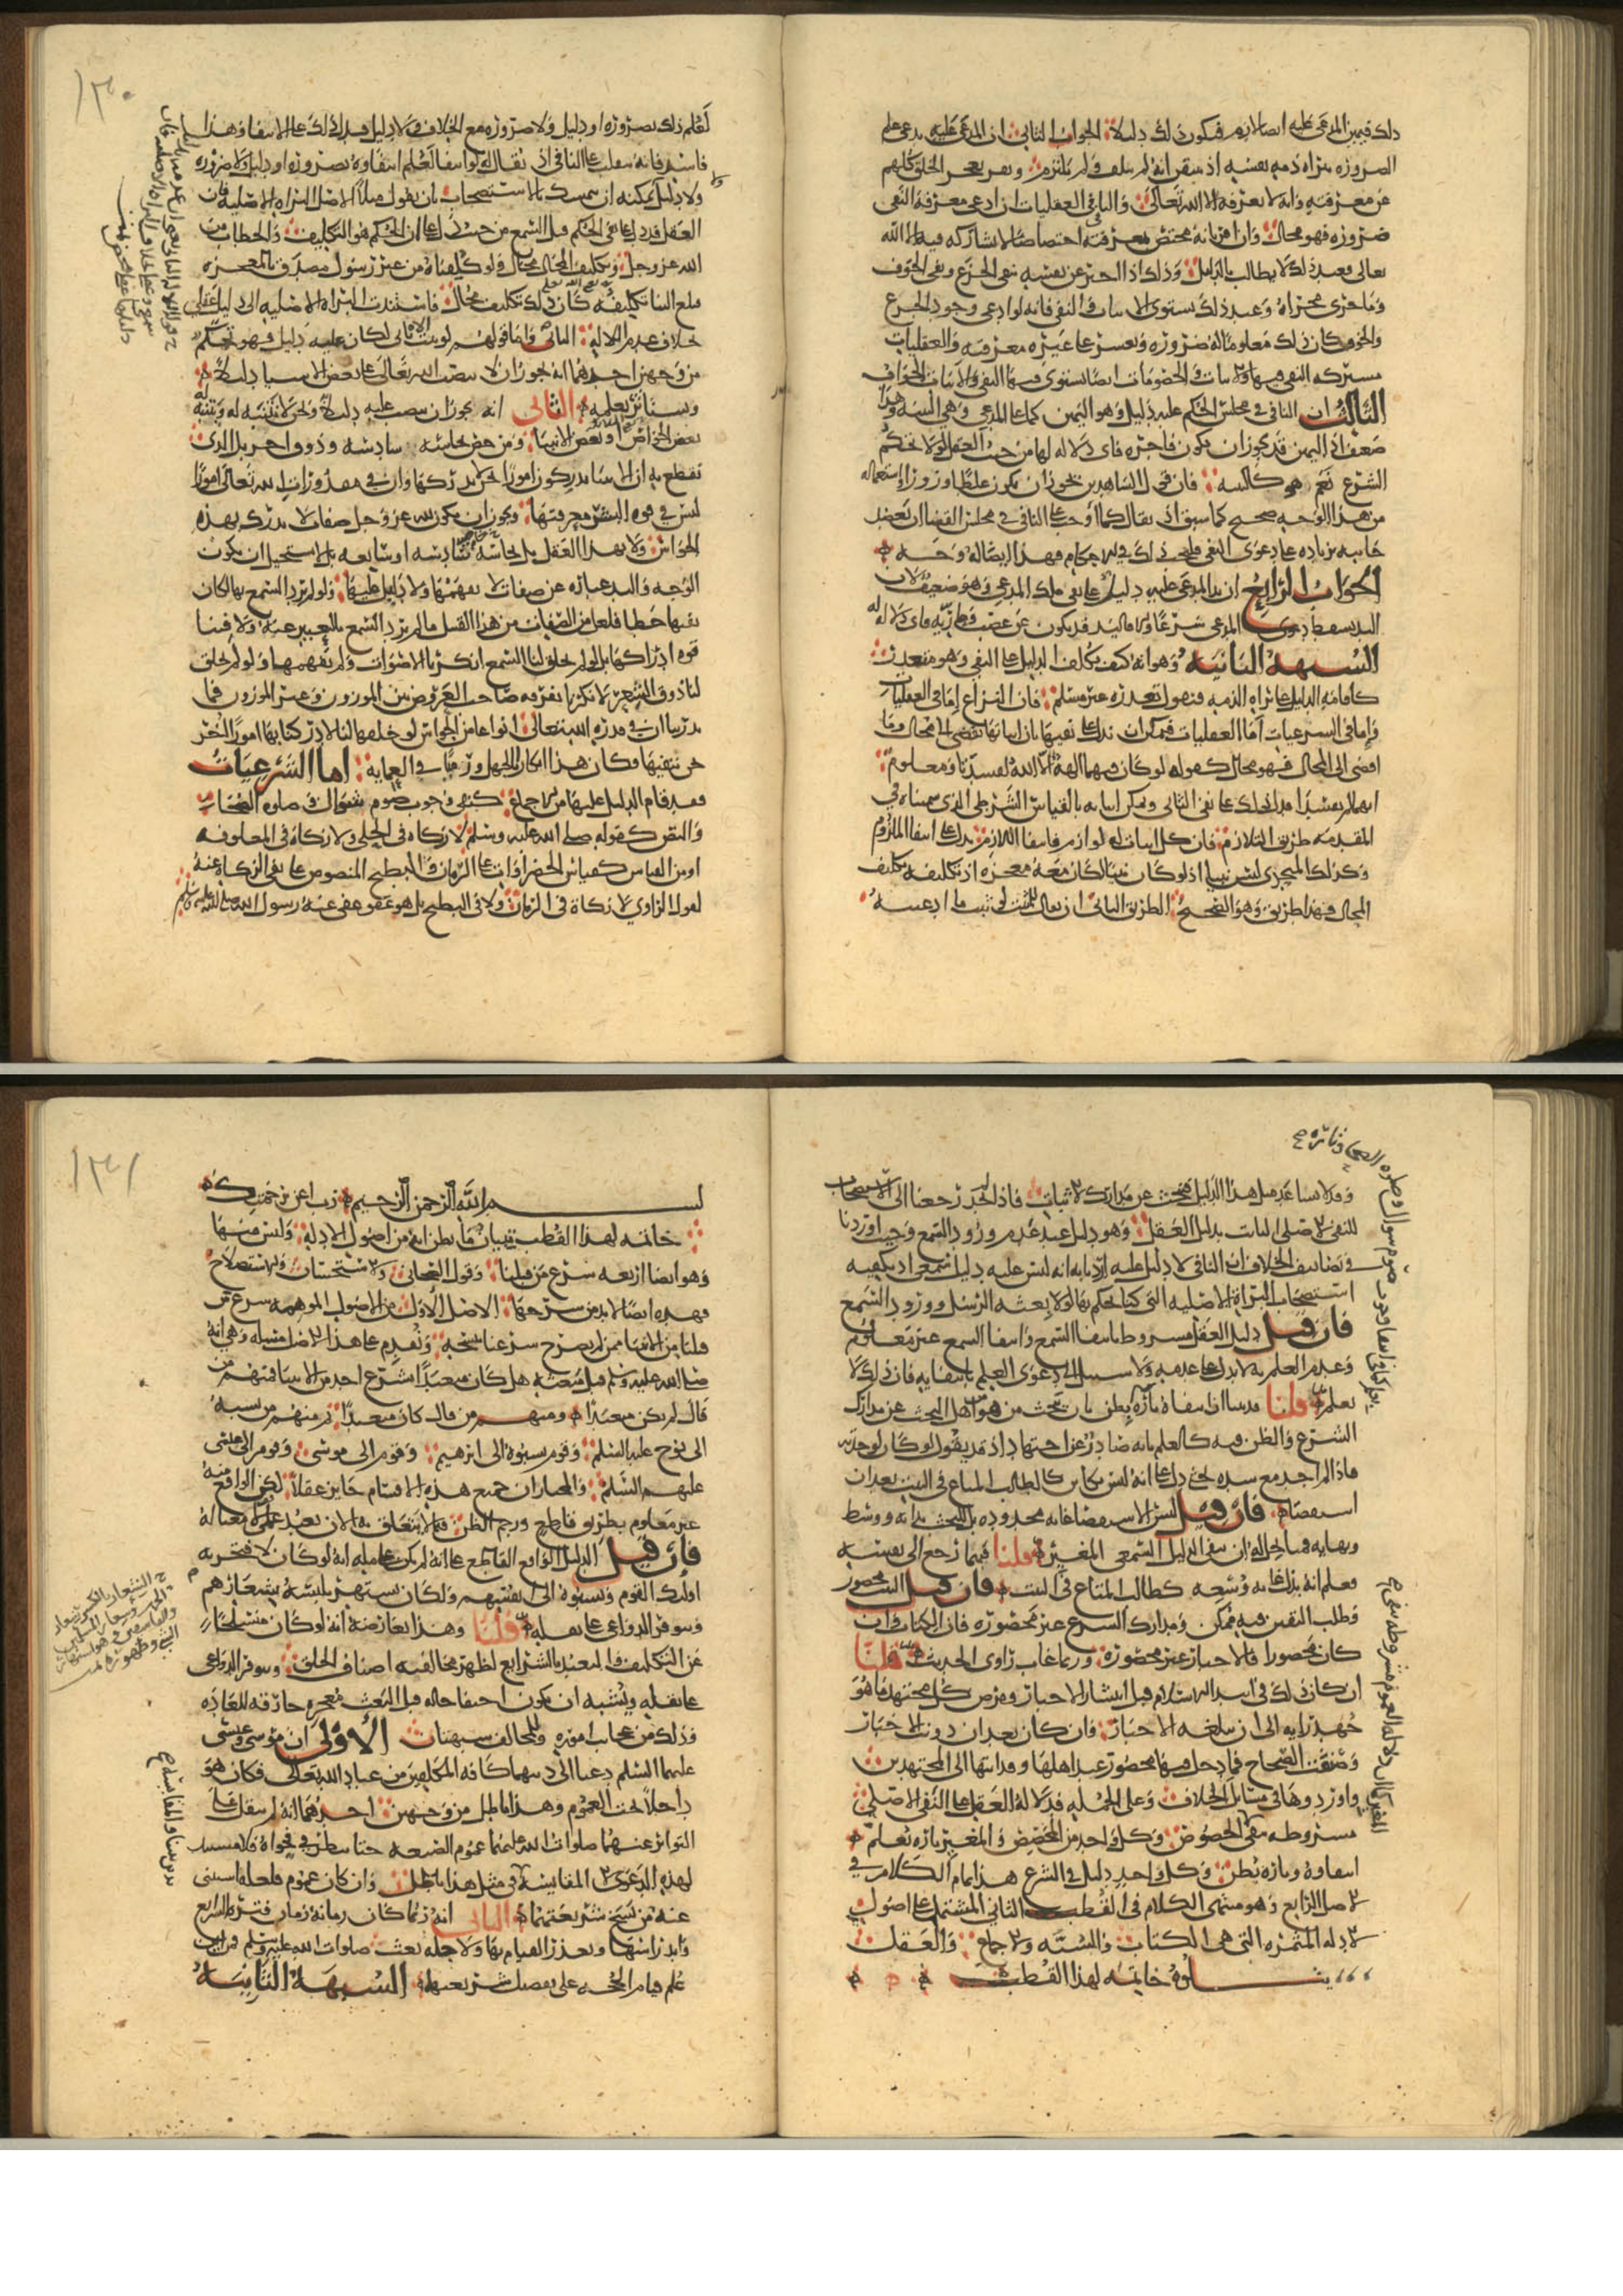 ذلك فيمين المدعى عليه ايضا لازم فيكون ذلك دليلا الجواب الثاني ان المدعى عليه يدعي علم
الضرورة ببراة ذمة نفسه اذ يتيقن انه لم يتلف ولم يلتزم ويعجز الخلق كلهم
عن معرفته وانه لا يعرفه الا الله تعالى والنافي في العقليات ان ادعى معرفة النفي
ضرورة فهو محال وان اقر بانه مختص بمعرفته اختصاصا لا يشاركه فيه الا الله
تعالى فعند ذلك لا يطالب بالدليل وكذلك اذا اخبر عن نفسه بنفي الجوع ونفي الخوف
وما جرى مجراه وعند ذلك يستوي الاثبات والنفي فانه لو ادعى وجود الجوع
والخوف كان ذلك معلوما له ضرورة ويعسر على غيره معرفته والعقليات
مشتركة النفي فيها والاثبات والمحسوسات ايضا يستوي فيها النفي والاثبات الجواب
الثالث ان النافي في مجلس الحكم عليه دليل وهو اليمين كما على المدعي وهي البينة وهذا
ضعيف اذ اليمين قد يجوز ان يكون فاجرة فاي دلالة لها من حيث العقل لولا حكم
الشرع نعم هو كالبينة فان قول الشاهدين يجوز ان يكون غلطا وزورا فاستعماله
من هذا الوجه صحيح كما سبق او يقال كما اوجب على النافي في مجلس القضا ان يعضد
جانبه بزيادة على دعوى النفي فليجب ذلك في الاحكام فهذا ايضا له وجه
الجواب الرابع ان يد المدعى عليه دليل على نفي ملك المدعي وهو ضعيف لان
اليد تسقط دعوى المدعي شرعا والا فاليد قد يكون عن غصب وعارية فاي دلالة له
الشبهة الثانية وهو انه كيف يكلف الدليل على النفي وهو متعذر
كاقامة الدليل على براة الذمة فنقول تعذره غير مسلم فان النزاع اما في العقليات
واما في الشرعيات اما العقليات فيمكن ان يدل على نفيها بان اثباتها يفضي الى محال وما
افضى الى المحال فهو محال كقوله لو كان فيهما الهة الا الله لفسدتا ومعلوم
انهما لم يفسدا فدل ذلك على نفي الثاني ويمكن اثباته بالقياس الشرطي الذي سميناه في
المقدمة طريق التلازم فان كل اثبات له لوازم فانتفا اللازم يدل على انتفا الملزوم
وكذلك المتحدي ليس نبيا اذ لو كان نبيا لكان معه معجزة اذ تكليفه تكليف
المحال فهذا طريق وهو الصحيح الطريق الثاني ان يقال للمثبت لو ثبت ما ادعيته
١٣٠
لعلم ذلك بضرورة او دليل ولا ضرورة مع الخلاف ولا دليل فدل ذلك على الانتفا وهذا
فاسد فانه ينقلب على النافي اذ يقال له لو انتفى لعلم انتفاؤه بضرورة او دليل ولا ضرورة
ولا دليل ولا يمكنه ان يتمسك بالاستصحاب بان يقول مثلا الاصل البراة الاصلية فان
العقل قد دل على نفي الحكم قبل السمع من حيث دل على ان الحكم هو التكليف والخطاب من
الله عز وجل وتكليف المحال محال ولو كلفناه من غير رسول مصدق بالمعجزة
يبلغ الينا تكليفه كان ذلك تكليف محال فاستندت البراة الاصلية الى دليل عقلي
خلاف عدم الاله الثاني واما قولهم لو ثبت الثاني لكان عليه دليل فهو تحكم
من وجهين احدهما انه يجوز ان لا ينصب الله تعالى على بعض الاشيا دليلا
ويستاثر بعلمه الثاني انه يجوز ان ينصب عليه دليلا ونحن لا نتنبه له ويتنبه له
بعض الخواص او بعض الانبيا ومن خص بحاسة سادسة وذوق اخر بل الذي
يقطع به ان الانبيا يدركون امورا نحن لا ندركها وان في مقدورات الله تعالى امورا
ليس في قوة البشر معرفتها ويجوز ان يكون لله عز وجل صفات لا تدرك بهذه
الحواس ولا بهذا العقل بل بحاسة سادسة او سابعة بل لا يستحيل ان يكون
الوجه واليد عبارة عن صفات لا نفهمها ولا دليل عليها ولو لم يرد السمع بها لكان
نفيها خطا فلعل من الصفات من هذا القبيل ما لم يرد السمع بالتعبير عنه ولا فينا
قوة ادراكها بل لو لم يخلق لنا السمع لانكرنا الاصوات ولم نفهمها ولو لم يخلق
لنا ذوق الشعر لانكرنا تفرقة صاحب العروض بين الموزون وغير الموزون فما
يدرينا ان في قدرة الله تعالى انواعا من الحواس لو خلقها لنا لادركنا بها امورا اخر
نحن ننفيها فكان هذا انكارا بالجهل ورميا في العماية اما الشرعيات
فقد قام الدليل عليها من الاجماع كنفي وجوب صوم شوال وصلاة الضحى
والنص كقوله صلى الله عليه وسلم لا زكاة في الحلي ولا زكاة في المعلوفة
او من القياس كقياس الخضراوات على الرمان والبطيخ المنصوص على نفي الزكاة عنه
لقول الراوي لا زكاة في الرمان ولا في البطيخ بل هو عفو عفى عنه رسول الله صلى الله عليه وسلم
وقد لا يساعد مثل هذا الدليل فنبحث عن مدارك الاثبات فاذا لم نجد رجعنا الى الاستصحاب
للنفي الاصلي الثابت بدليل العقل وهو دليل عند عدم ورود السمع وحيث اوردنا
في تصانيف الخلاف ان النافي لا دليل عليه اردنا به انه ليس عليه دليل سمعي اذ يكفيه
استصحاب البراة الاصلية التي كنا نحكم بها لولا بعثة الرسل وورود السمع
فان قيل دليل العقل مشروط بانتفا السمع وانتفا السمع غير معلوم
وعدم العلم به لا يدل على عدمه ولا سبيل الى دعوى العلم بانتفايه فان ذلك لا
يعلم قلنا قد بينا ان انتفاه تارة يعلم وتارة يظن بان يبحث من هو من اهل البحث عن مدارك
الشرع والظن فيه كالعلم لانه صادر عن اجتهاد اذ قد يقول لو كان لوجدته
فاذا لم اجد مع شدة بحثي دل على انه ليس بكاين كالطالب المتاع في البيت بعد ان
استقصى فان قيل ليس للاستقصا غاية محدودة بل للبحث بداية ووسط
ونهاية فمتى يحل له ان ينفي الدليل السمعي المغير قلنا مهما رجع الى نفسه
فعلم انه بذل غاية وسعه كطالب المتاع في البيت فان قيل البيت محصور
وطلب اليقين فيه ممكن ومدارك الشرع غير محصورة فان الكتاب وان
كان محصورا فالاخبار غير محصورة وربما غاب راوي الحديث قلنا
ان كان ذلك في ابتدا الاسلام قبل انتشار الاخبار ففرض كل مجتهد ما هو
جهد رايه الى ان يبلغه الاخبار وان كان بعد ان دونت الاخبار
وصنفت الصحاح فما دخل فيها محصور عند اهلها وقد انتهى الى المجتهدين
واوردوها في مسايل الخلاف وعلى الجملة فدلالة العقل على النفي الاصلي
مشروطة بنفي المغير كما ان دلالة العموم مشروطة بنفي المخصص وكل واحد من المخصص والمغير تارة يعلم
انتفاوه وتارة يظن وكل واحد دليل في الشرع هذا تمام الكلام في
الاصل الرابع وهو منتهى الكلام في القطب الثاني المشتمل على اصول
الادلة المثمرة التي هي الكتاب والسنة والاجماع والعقل
يتلوه خاتمة لهذا القطب
١٣١
بسم الله الرحمن الرحيم رب اعن برحمتك
خاتمة لهذا القطب ببيان ما يظن انه من اصول الادلة وليس منها
وهو ايضا اربعة شرع من قبلنا وقول الصحابي والاستحسان والاستصلاح
فهذه ايضا لا بد من شرحها الاصل الاول من الاصول الموهومة شرع من
قبلنا من الانبيا فيما لم يصرح شرعنا بنسخه ونقدم على هذا الاصل مسلة وهي انه
صلى الله عليه وسلم قبل مبعثه هل كان متعبدا بشرع احد من الانبيا فمنهم من
قال لم يكن متعبدا ومنهم من قال كان متعبدا ثم منهم من نسبه
الى نوح عليه السلم وقوم نسبوه الى ابرهيم وقوم الى موسى وقوم الى عيسى
عليهم السلم والمختار ان جميع هذه الاقسام جايز عقلا لكن الواقع منه
غير معلوم بطريق قاطع ورجم الظن فيما لا يتعلق به الان تعبد عملي لا معنى له
فان قيل الدليل القاطع على انه لم يكن على ملة انه لو كان لافتخر به
اوليك القوم ونسبوه الى انفسهم ولكان يشتهر تلبسه بشعارهم
وتتوفر الدواعي على نقله قلنا وهذا يعارضه انه لو كان منسلخا
عن التكليف والتعبد بالشرايع لظهر مخالفته اصناف الخلق وتتوفر الدواعي
على نقله ويشبه ان يكون اختفا حاله قبل البعث معجزة خارقة للعادة
وذلك من عجايب اموره وللمخالف شبهتان الاولى ان موسى وعيسى
عليهما السلم دعيا الى دينهما كافة المكلفين من عباد الله تعالى فكان هو
داخلا تحت العموم وهذا باطل من وجهين احدهما انه لم ينقل على
التواتر عنهما صلوات الله عليهما عموم الصيغة حتى ينظر في فحواه فلا مستند
لهذه الدعوى الا المقايسة بدين نبينا والمقايسة في مثل هذا باطل وان كان عموم فلعله استثنى
عنه من ينسخ شريعتهما الثاني انه ربما كان زمانه زمان فترة الشرايع
واندراسها وتعذر القيام بها ولاجله بعث صلوات الله عليه وسلم فمن اين
علم قيام الحجة على تفصيل شريعتهما الشبهة الثانية